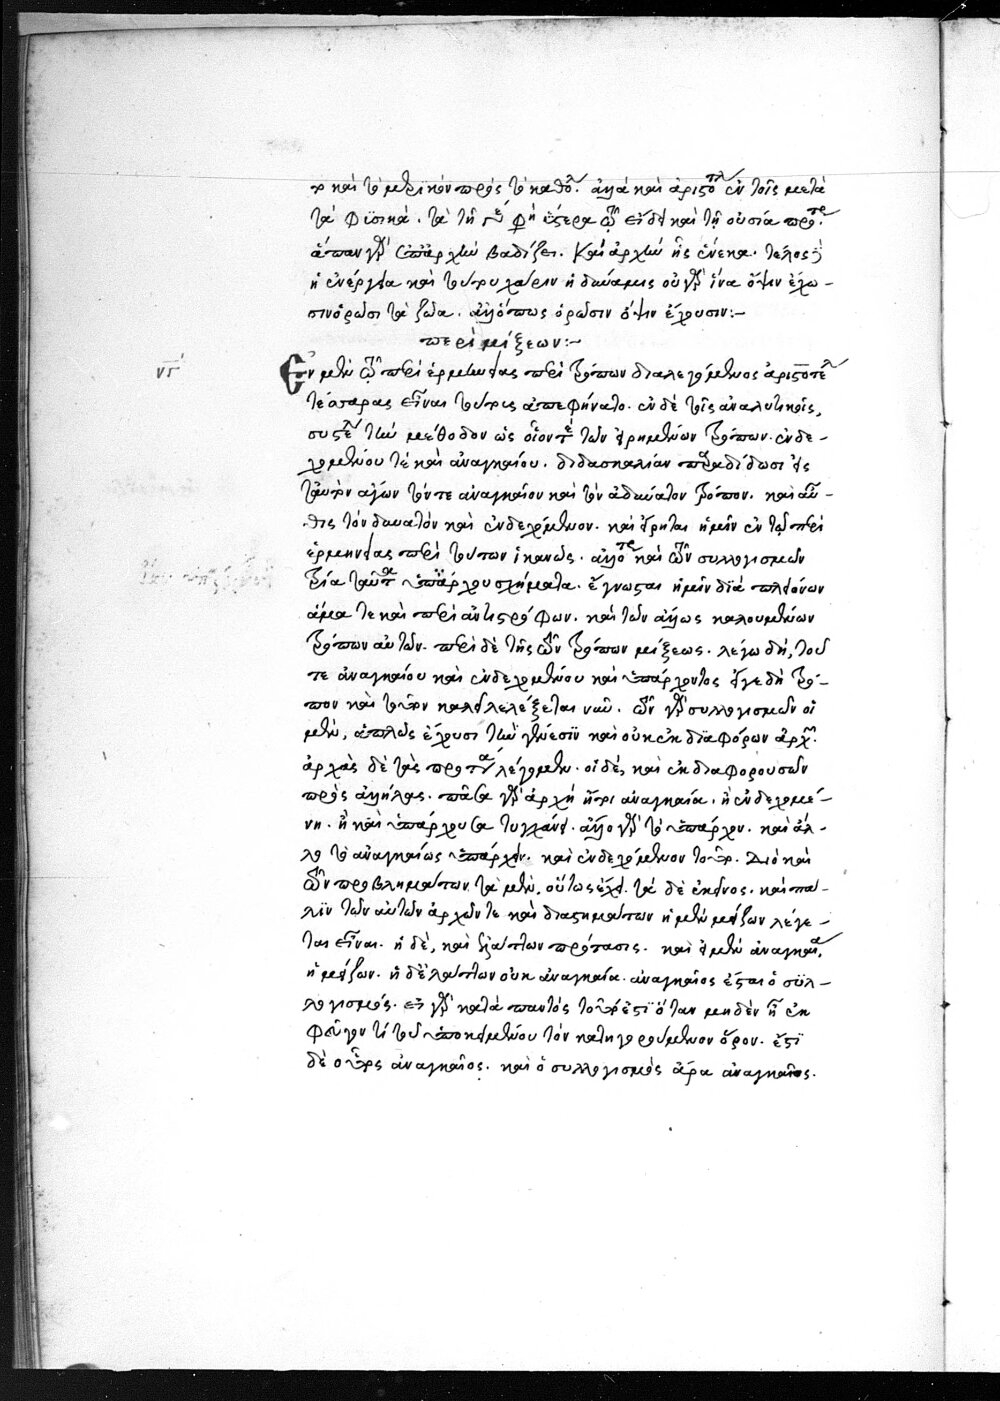 ν καὶ τὸ μερικὸν πρὸς τὸ καθόλ. ἀλλὰ καὶ ἀριστοτλ ἐν τοῖς μετὰ
τὰ φυσικά. τὰ τῇ γενέ ὕστερα τῶν εἴδει καὶ τῇ οὐσία πρότρ.
ἅπαν γὰρ ἐπ' ἀρχὴν βαδίζει. καὶ ἀρχὴν ἧς ἕνεκα. τέλος δ'
ἡ ἐνέργεια καὶ τούτου χάριν ἡ δύναμις οὐ γὰρ ἵνα ὄψιν ἔχω-
σιν ὁρῶσι τὰ ζῶα. ἀλλ' ὅπως ὁρῶσιν ὄψιν ἔχουσιν:-
περὶ μίξεων:-
νγ
Ἐν μὲν τῶ περὶ ἑρμηνείας περὶ τρόπων διαλεγόμενος ἀριστοτέλ
τέσσαρας εἶναι τούτους ἀπεφήνατο. ἐν δὲ τοῖς ἀναλυτικοῖς,
τὴν μέθοδον ὡς οἷόν τε τῶν εἰρημένων τρόπων. ἐνδε-
χομένου τὲ καὶ ἀναγκαίου. διδασκαλίαν παραδίδωσι εἰς
ταὐτὸν ἄγων τόν τε ἀναγκαῖον καὶ τὸν ἀδύνατον τρόπον. καὶ αὖ-
θις τὸν δυνατὸν καὶ ἐνδεχόμενον. καὶ εἴρηται ἡμῖν ἐν τῷ περὶ
ἑρμηνείας περὶ τούτων ἱκανῶς. καὶ τῶν συλλογισμῶν
τρία ταῦτα ὑπάρχου σχήματα. ἔγνωσται ἡμῖν διὰ πλειόνων
ἅμα τε καὶ περὶ ἀντιστρόφων. καὶ τῶν ἄλλως καλουμένων
τρόπων αὐτῶν. περὶ δὲ τῆς τῶν τρόπων μίξεως. λέγω δὴ, τοῦ
τε ἀναγκαίου καὶ ἐνδεχομένου καὶ ὑπάρχοντος εἴγε δὴ τρό-
πον καὶ τοῦτον καλεῖ λελέξεται νῦν. τῶν γὰρ συλλογισμῶν οἱ
μὲν, ἁπλῶς ἔχουσι τὴν γένεσιν καὶ οὐκ ἐκ διαφόρων ἀρχῶν.
ἀρχὰς δὲ τὰς προτάσ λέγομεν. οἱ δὲ, καὶ ἐκ διαφορουσῶν
πρὸς ἀλλήλας. πᾶσα γὰρ ἀρχή ἤτοι ἀναγκαία. ἢ ἐνδεχομέ-
νη. ἢ καὶ ὑπάρχουσα τυγχάνει. ἄλλο γὰρ τὸ ὑπάρχον. καὶ ἄλ-
λο τὸ ἀναγκαίως ὑπάρχειν. καὶ ἐνδεχόμενον τοῦτο. διὸ καὶ
τῶν προβλημάτων τὰ μὲν, οὕτως ἔχει. τὰ δὲ ἐκείνως. καὶ πά-
λιν τῶν αὐτῶν ἀρχῶν τε καὶ διαστημάτων ἡ μὲν μείζων λέγε-
ται εἶναι. ἡ δὲ, καὶ ἐλάττων πρότασις. καὶ εἰ μὲν ἀναγκαία,
ἡ μείζων. ἡ δ' ἐλάττων οὐκ ἀναγκαία. ἀναγκαῖος ἔσται ὁ συλ-
λογισμός. εἰ γὰρ κατὰ παντός τοῦτό ἐστι ὅταν μηδὲν ᾖ ἐκ
φεῦγον τί τοῦ ὑποκειμένου τὸν κατηγορούμενον ὅρον. ἔστι
δὲ οὗτος ἀναγκαῖος. καὶ ὁ συλλογισμὸς ἄρα ἀναγκαῖος.